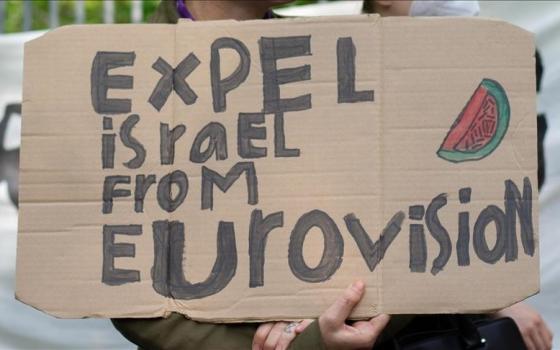 EXPEL
iSraEL
FROM
EUroviSioN